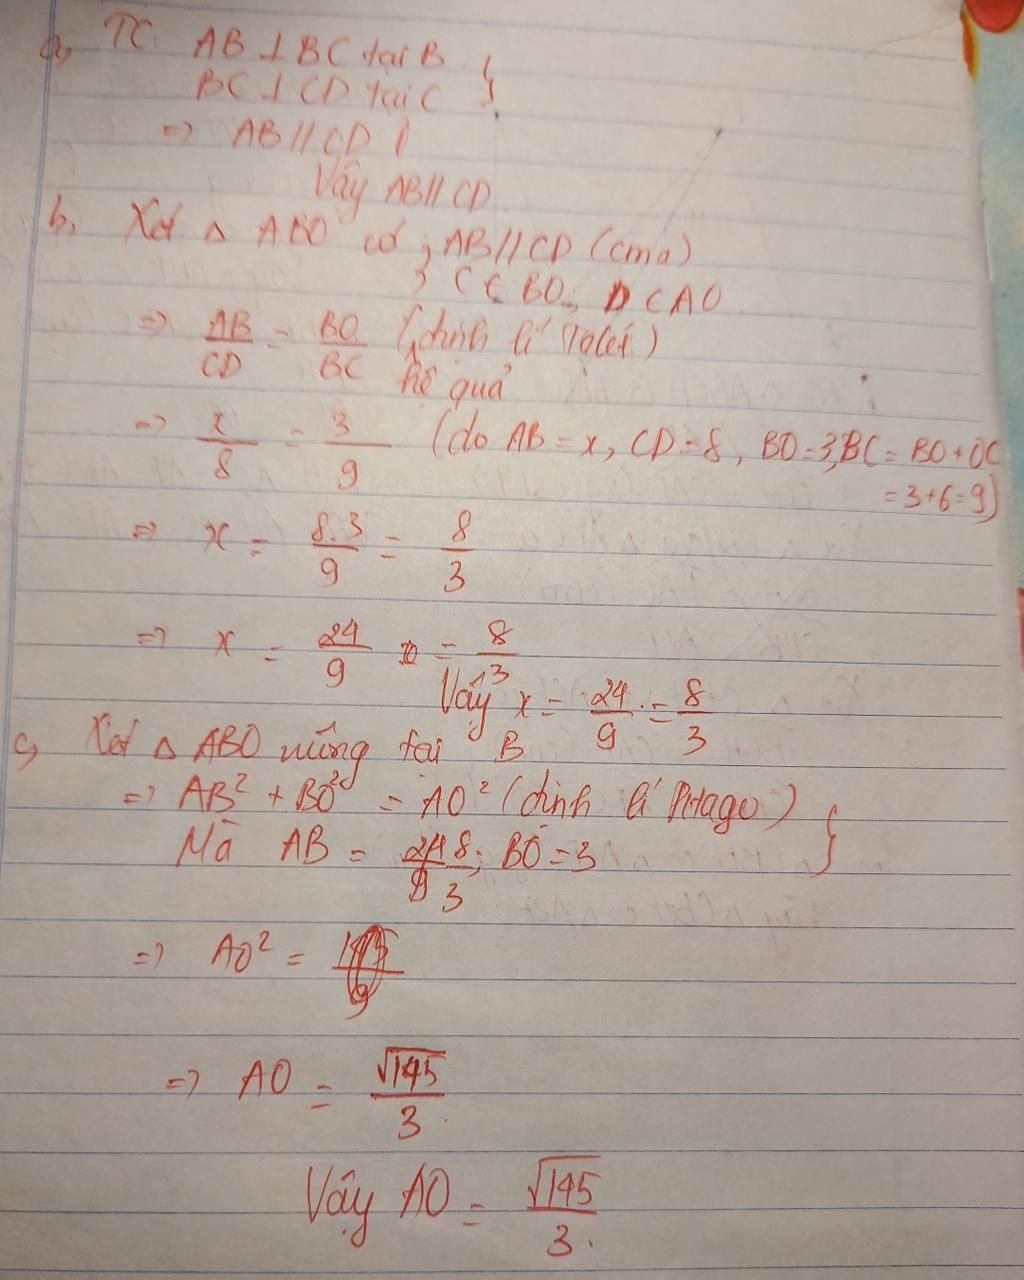 a, TC: AB ⊥ BC tại B }
BC ⊥ CD tại C
=> AB // CD
Vậy AB // CD
b, Xét △ ABO có ; AB // CD (cma)
; C ∈ BO ; D ∈ AO
=> AB/CD = BO/BC (định lí Talét)
hệ quả
=> x/8 = 3/9 (do AB = x, CD = 8, BO = 3, BC = BO + OC
= 3 + 6 = 9)
=> x = 8.3/9 = 8/3
=> x = 24/9 = 8/3
Vậy x = 24/9 = 8/3
c, Xét △ ABO vuông tại B
=> AB² + BO² = AO² (định lí Pitago) }
Mà AB = 8/3 ; BO = 3
=> AO² =
=> AO = √145/3
Vậy AO = √145/3.